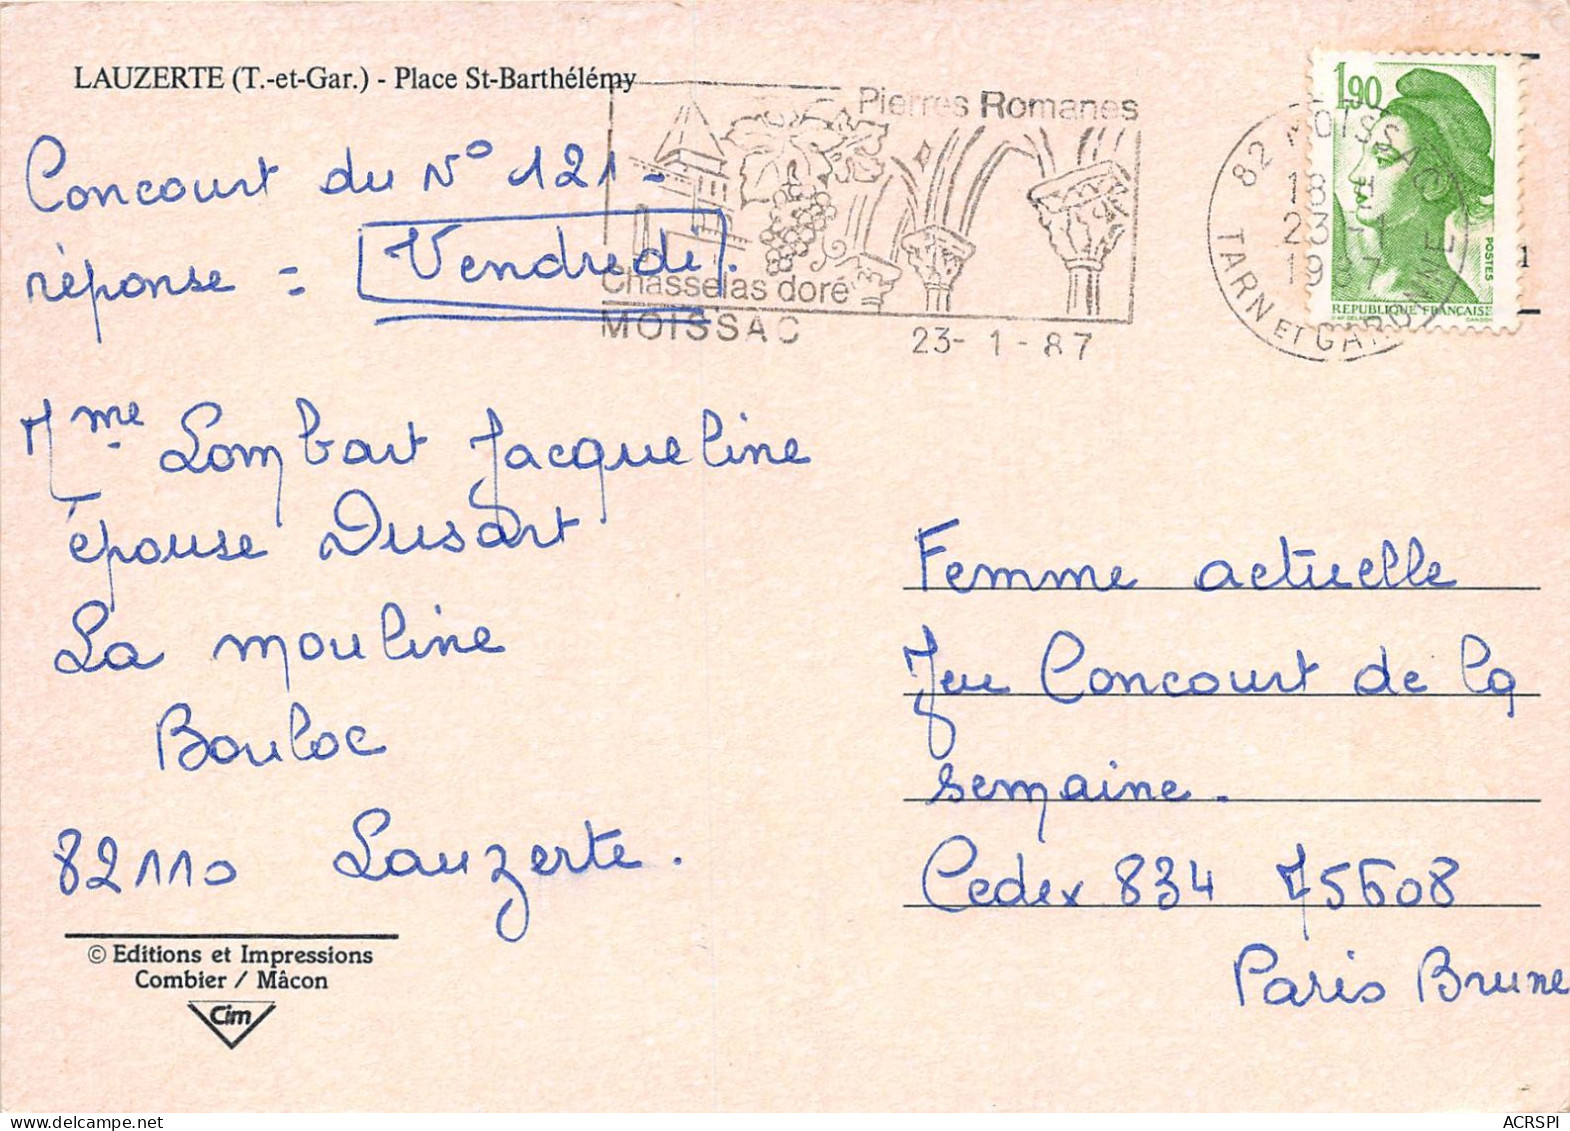 LAUZERTE (T.-et-Gar.) - Place St-Barthélémy
Concourt du N° 121 -
réponse = Vendredi.
Mme Lombart Jacqueline
épouse Dusart
La mouline
Bouloc
82110 Lauzerte.
© Editions et Impressions
Combier / Mâcon
Cim
Pierres Romanes
Chasselas doré
MOISSAC
23-1-87
82 MOISSAC
18 H
23-1
1987
TARN ET GARONNE
1,90
POSTES
RÉPUBLIQUE FRANÇAISE
Femme actuelle
Jeu Concourt de la
semaine.
Cedex 834 75608
Paris Brune
ACRSPI